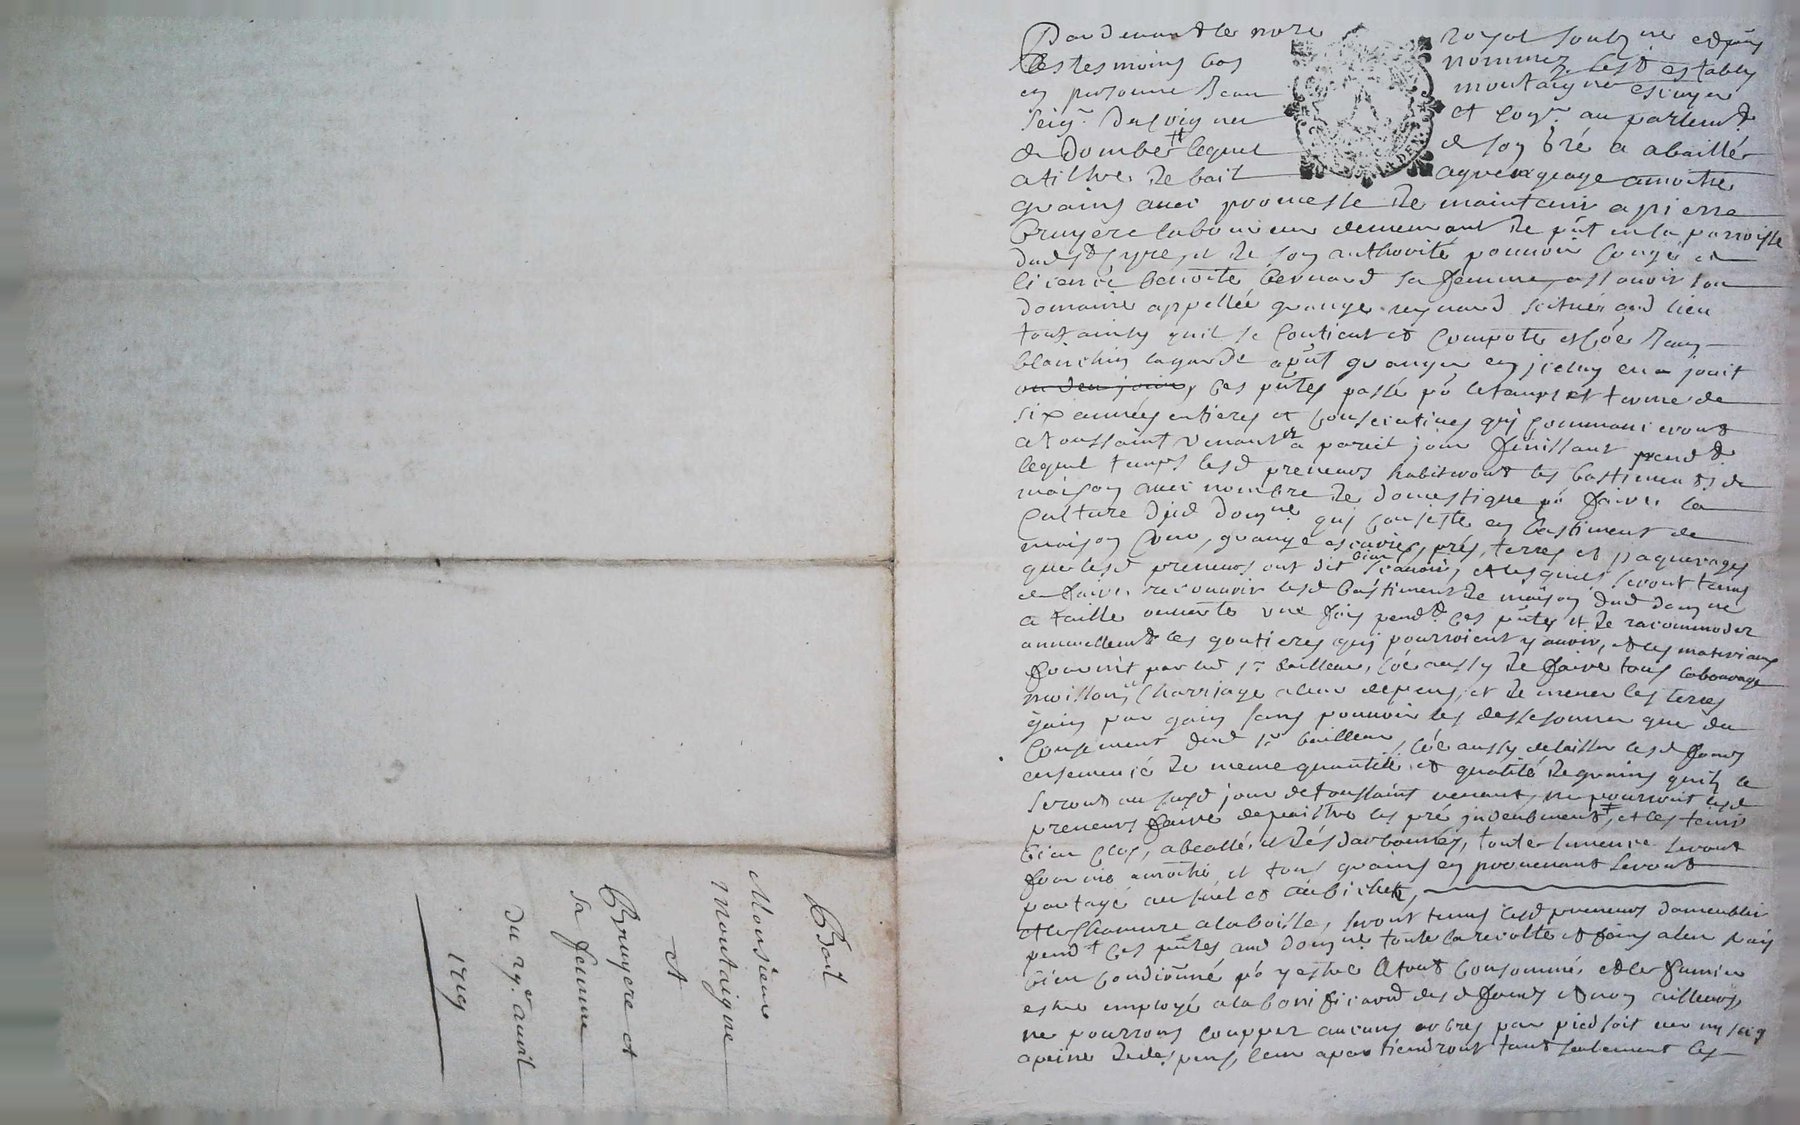 Bail
Monsieur
Montaigne
et
Bruyere et
sa femme
Du 29e avril
1719
Par devant le nore royal soubz ne et pns
les tesmoins bas nommez fust estably
en personne Jean montaigne escuyer
seigr. et conr. au parlemt
de Dombes lequel de son gré a abaillé
a tiltre de bail a grangeage a moitié
grains avec promesse de maintenir a pierre
bruyere laboureur demeurant de pnt en la parroisse
et de son authorité pouvoir congé et
licence benoite bernard sa femme, assavoir son
domaine appellé grange reynard scitué aud lieu
tout ainsy quil se contient et comporte et Jean
blanchin lagarde a pnt granger en jceluy en a jouit
ces pntes passé po le temps et terme de
six années entieres et consecutives qui commanceront
a toussaint venant et a pareil jour finissant pendt
lequel temps lesd preneurs habiteront les bastiments de
maison avec nombre de domestique po faire la
culture dud domne qui consiste en bastiment de
maison cour, grange escuries, prés, terres et paquerages
que lesd preneurs ont dit bien scavoir, et lesquels seront tenus
de faire recouvrir lesd bastiment de maison dud domne
a taille ouverte une fois pendt ces pntes et de racommoder
annuellemt les goutieres qui pourroient y avoir, et les materiaux
fournit par led sr bailleur, coe aussy de faire tous labourage
moissons charriage a leur depens, et de mener les terres
gain par gain sans pouvoir les dessesonner que du
consement dud sr bailleur, coe aussy de laisser lesd fonds
ensemencé de meme quantité et qualité de grains quilz le
seront au susd jour de toussaint venant, ne pourront lesd
preneurs faire depaistre les pré induebment, et les tenir
bien clos, et desdarbonnés, toutes semence seront
fournie a moitié et tous grains en provenant seront
partagé au suel et au bichet,
et le chanvre a la boille, seront tenus lesd preneurs dameublir
pendt ces pntes aud domne toute la recolte et foins a leur
bien condionné po y estre le tout consommé et les fumier
estre employé a la bonificaond desd fonds et non ailleurs
ne pourrons coupper aucuns arbres par pied soit vert ny sec
a peine de despens, leur apartiendront tant seulement les